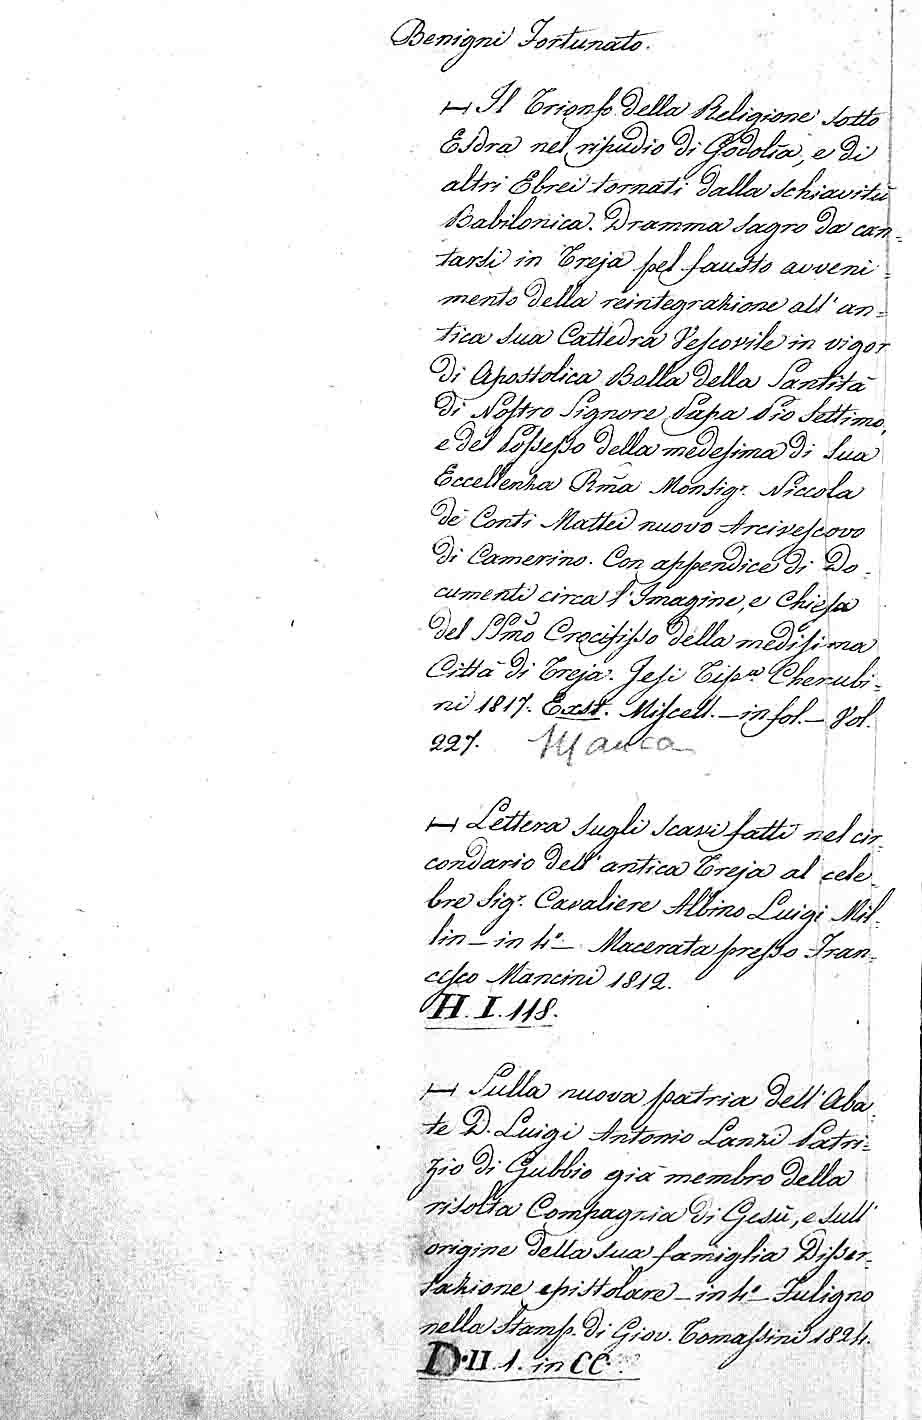 Benigni Fortunato.
— Il Trionfo della Religione sotto
Esdra nel ripudio di Godolia, e di
altri Ebrei tornati dalla schiavitù
Babilonica. Dramma sagro da can=
tarsi in Treja pel fausto avveni=
mento della reintegrazione all'an=
tica sua Cattedra Vescovile in vigor
di Apostolica Bolla della Santità
di Nostro Signore Papa Pio Settimo,
e del Possesso della medesima di Sua
Eccellenza Rm̃a Monsigr. Niccola
de' Conti Mattei nuovo Arcivescovo
di Camerino. Con appendice di Do=
cumenti circa l'Imagine, e Chiesa
del SSm̃o Crocifisso della medesima
Città di Treja. Jesi Tipa. Cherubi=
ni 1817. Exst. Miscell. — in fol. — Vol.
227. Manca
— Lettera sugli scavi fatti nel cir=
condario dell'antica Treja al cele=
bre Sigr. Cavaliere Albino Luigi Mil=
lin — in 4o. — Macerata presso Fran=
cesco Mancini 1812.
H. I. 118.
— Sulla nuova patria dell'Aba=
te D. Luigi Antonio Lanzi Patri=
zio di Gubbio già membro della
risolta Compagnia di Gesù, e sull'
origine della sua famiglia Disser=
tazione epistolare — in 4o — Fuligno
nella Stamp. di Giov. Tomassini 1824.
D. II. 1. in CC.